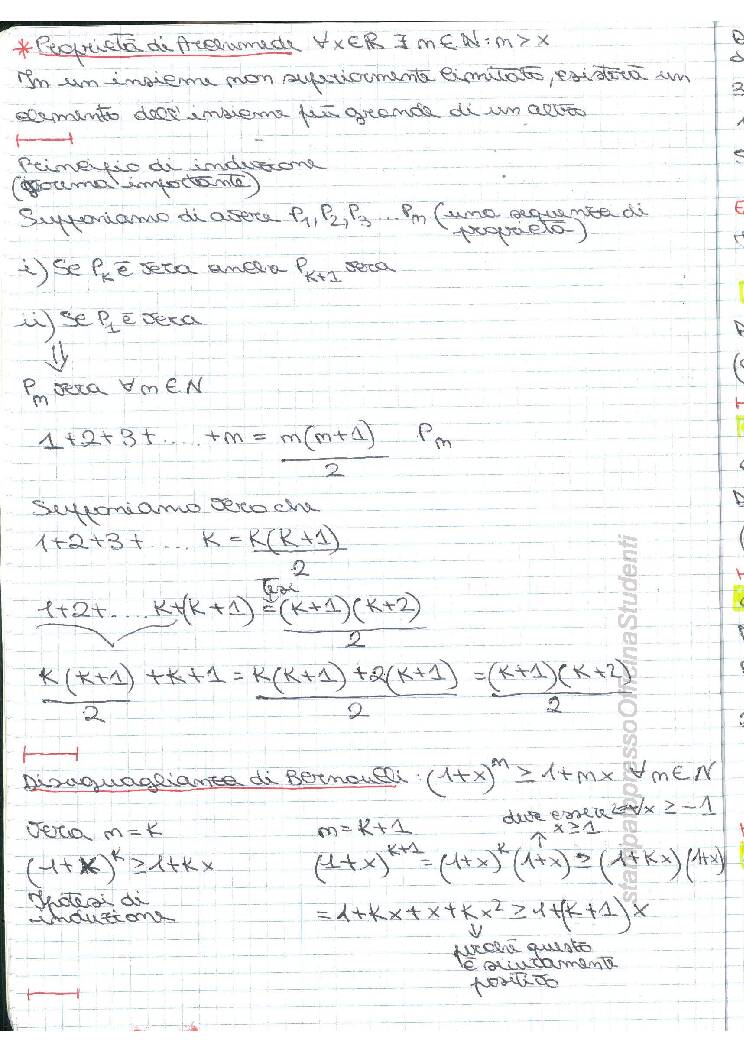 * Proprietà di Archimede ∀x∈R ∃ m∈N: m > x
In un insieme non superiormente limitato, esisterà un
elemento dell'insieme più grande di un altro
Principio di induzione
(forma importante)
Supponiamo di avere P₁, P₂, P₃ ... Pₘ (una sequenza di
proprietà)
i) Se Pₖ è vera anche Pₖ₊₁ vera
ii) Se P₁ è vera
⇓
Pₘ vera ∀m∈N
1+2+3+.....+m = m(m+1)/2 Pₘ
Supponiamo vero che
1+2+3+.... K = K(K+1)/2
tesi
1+2+.... K+(K+1) = (K+1)(K+2)/2
K(K+1)/2 + K+1 = K(K+1)+2(K+1)/2 = (K+1)(K+2)/2
Disuguaglianza di Bernoulli: (1+x)ᵐ ≥ 1+mx ∀m∈N
∀x ≥ -1
deve essere
x ≥ 1
↑
Vera m=K
m=K+1
(1+x)ᴷ ≥ 1+Kx
(1+x)ᴷ⁺¹ = (1+x)ᴷ(1+x) ≥ (1+Kx)(1+x)
Ipotesi di
induzione
= 1+Kx+x+Kx² ≥ 1+(K+1)x
↓
perché questo
è sicuramente
positivo
stampato presso OfficinaStudenti